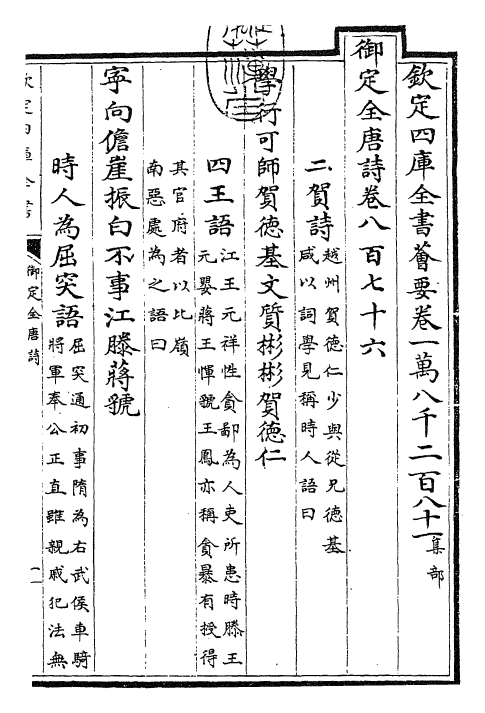 欽定四庫全書薈要卷一萬八千二百八十一集部
御定全唐詩卷八百七十六
二賀詩
越州賀德仁少與從兄德基
咸以詞學見稱時人語曰
學行可師賀德基文質彬彬賀德仁
四王語
江王元祥性貪鄙為人吏所患時滕王
元嬰將王惲虢王鳳亦稱貪暴有授得
其官府者以比嶺
南惡處為之語曰
寧向儋崖振白不事江滕蔣虢
時人為屈突語
屈突通初事隋為右武侯車騎
將軍奉公正直雖親戚犯法無
欽定四庫全書
御定全唐詩
一